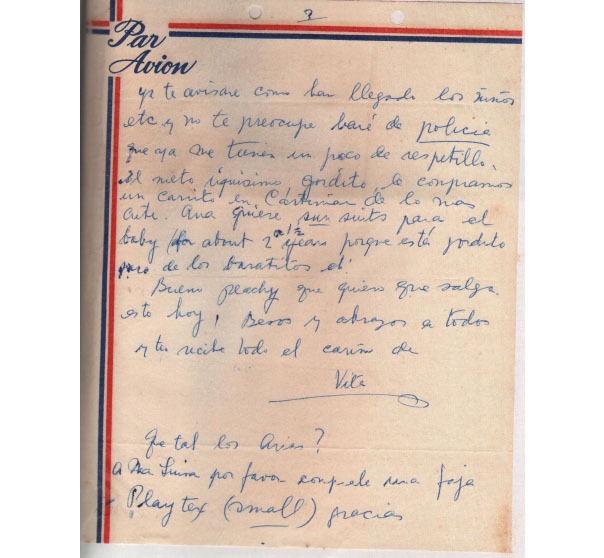 3
Par
Avion
ya te avisare como han llegado los niños
etc y no te preocupe haré de policia
que ya me tienen un poco de respetillo.
El nieto riquisimo gordito, le compramos
un carrito en de lo mas
cute. Ana quiere sun suits para el
baby (for about 2 years porque está gordito
de los baratitos eh!
Bueno peachy que quiero que salga
esto hoy, Besos y abrazos a todos
y tu recibe todo el cariño de
Vita
Que tal los Arias?
A Mª Luisa por favor comprele una faja
Playtex (small) gracias